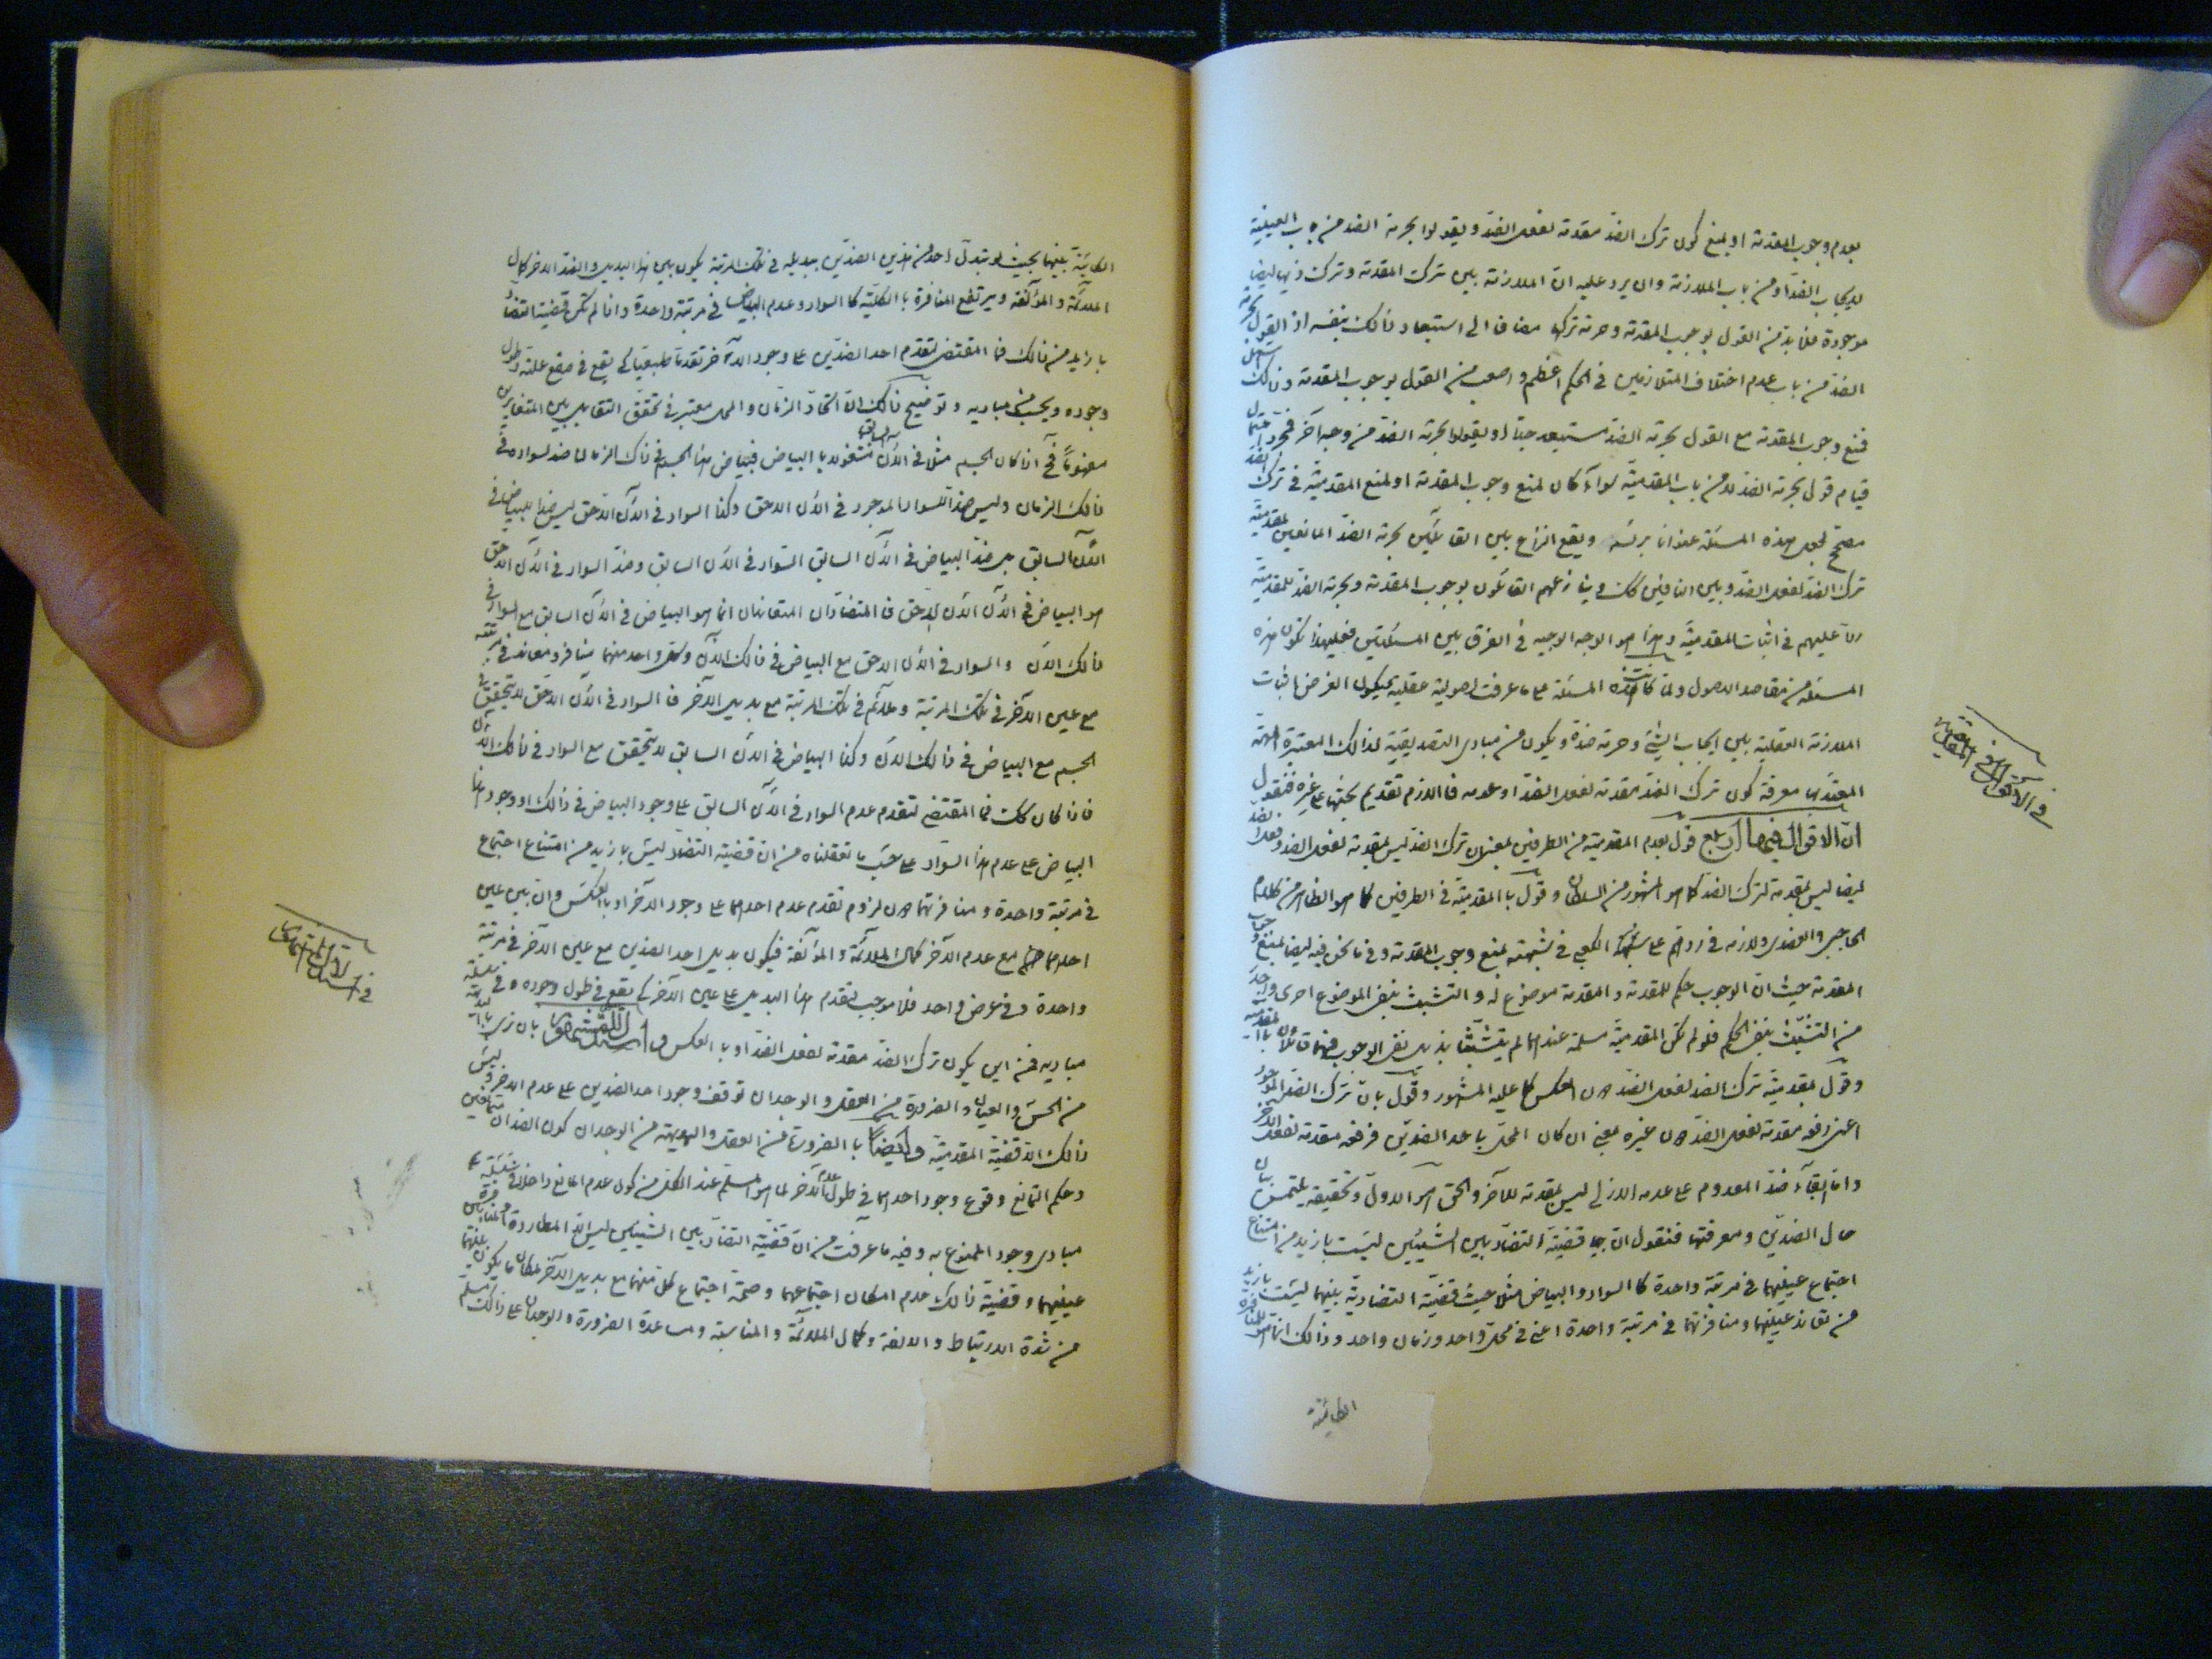 بعدم وجوب المقدمة او لمنع كون ترك الضد مقدمة لفعل الضد ويقولوا بحرمة الضد من باب العينية
لايجاب الضد او من باب الملازمة وان يرد عليه ان الملازمة بين ترك المقدمة وترك ذيها ايضا
موجودة فلا بد من القول بوجوب المقدمة وحرمة تركها مضافا الى استبعاد ذلك بنفسه اذ القول بحرمة
الضد من باب عدم اختلاف المتلازمين فى الحكم اعظم واصعب من القول بوجوب المقدمة وذلك
فمنع وجوب المقدمة مع القول بحرمة الضد مستبعد جدا او يقولوا بحرمة الضد من وجه آخر فمجرد احتمال
قيام قول بحرمة الضد لا من باب المقدمية سواء كان لمنع وجوب المقدمة او لمنع المقدمية فى ترك الضد
مصحح لجعل هذه المسئلة عنوانا برأسه ويقع النزاع بين القائلين بحرمة الضد المانعين لمقدمية
ترك الضد لفعل الضد وبين النافين كك وينازعهم القائلون بوجوب المقدمة وبحرمة الضد للمقدمية
ردا عليهم فى اثبات المقدمية وهذا هو الوجه الوجيه فى الفرق بين المسئلتين فعليهذا تكون هذه
المسئلة من مقاصد الاصول ولما كانت هذه المسئلة على ما عرفت اصولية عقلية ليكون الغرض اثبات
الملازمة العقلية بين ايجاب الشئ وحرمة ضده ويكون من مبادى التصديقية لذالك المعتبرة المهمة
المعتد بها معرفة كون ترك الضد مقدمة لفعل الضد او عدمه فاللازم تقديم بحثها على غيره فنقول
ان الاقوال فيها اربع قول بعدم المقدمية من الطرفين بمعنى ان ترك الضد ليس بمقدمة لفعل الضد وفعل الضد
ايضا ليس بمقدمة لترك الضد كما هو المشهور من السلطان وقول بالمقدمية فى الطرفين كما هو الظاهر من كلام
الحاجبى والعضدى ولازمه فى ردهم على شبهة الكعبى فى شبهته بمنع وجوب المقدمة وفى ما نحن فيه ايضا بمنع وجوب
المقدمة حيث ان الوجوب حكم للمقدمة والمقدمة موضوع له والتشبث بنفى الموضوع احرى واجدر
من التشبث بنفى الحكم فلو لم تكن المقدمية مسلمة عندهما لم يتشبثا بذيل نفى الوجوب فهما قائلان بالمقدمية
وقول بمقدمية ترك الضد لفعل الضد دون العكس كما عليه المشهور وقول بان ترك الضد الموجود
اعنى رفعه مقدمة لفعل الضد دون غيره بمعنى ان كان المحل باحد الضدين فرفعه مقدمة لفعل الاخر
واما ابقاء ضد المعدوم على عدمه الازلى ليس بمقدمة للآخر والحق هو الاول وتحقيقه يلتمس بيان
حال الضدين ومعرفتها فنقول ان قضية التضاد بين الشيئين ليست بازيد من امتناع
اجتماع عينيهما فى مرتبة واحدة كالسواد والبياض مثلا حيث قضية التضادية بينهما ليست بازيد
من تعاند عينيهما ومنافرتهما فى مرتبة واحدة اعنى فى محل واحد وزمان واحد وذالك انما هو للمنافرة
فى الاقوال فى المقدمية
الكائنة بينهما بحيث لو تبدل احد من هذين الضدين ببديله فى تلك المرتبة يكون بين هذا البديل والضد الاخر كمال
الملائمة والمؤالفة ويرتفع المنافرة بالكلية كالسواد وعدم البياض فى مرتبة واحدة واذا لم تكن قضية التضاد
بازيد من ذالك فما المقتضى لتقدم احد الضدين على وجود الآخر تقدما طبيعيا كى يقع فى صقع علته وطول
وجوده ويحسب من مباديه وتوضيح ذالك ان اتحاد الزمان والمحل معتبر فى تحقق التقابل بين المتغايرين
مفهوما فح اذا كان الجسم مثلا فى الآن السابق مشغولا بالبياض فبياض هذا الجسم فى ذاك الزمان ضد لسواده فى
ذالك الزمان وليس ضدا للسواد الموجود فى الآن اللاحق وكذا السواد فى الآن اللاحق ليس ضدا للبياض فى
الآن السابق بل ضد البياض فى الآن السابق السواد فى الآن السابق وضد السواد فى الآن اللاحق
هو البياض فى الآن اللاحق فالمتضادان المتعاندان انما هو البياض فى الآن السابق مع السواد فى
ذالك الآن والسواد فى الآن اللاحق مع البياض فى ذالك الآن وكل واحد منهما منافر ومعاند فى مرتبته
مع عين الآخر فى تلك المرتبة وملائم فى تلك المرتبة مع بديل الآخر فالسواد فى الآن اللاحق لا يتحقق فى
الجسم مع البياض فى ذالك الآن وكذا البياض فى الآن السابق لا يتحقق مع السواد فى ذالك الآن
فاذا كان كك فما المقتضى لتقدم عدم السواد فى الآن السابق على وجود البياض فى ذالك او وجود هذا
البياض على عدم هذا السواد على حسب ما تعقلناه من ان قضية التضاد ليس بازيد من امتناع اجتماع
فى مرتبة واحدة ومنافرتهما دون لزوم تقدم عدم احدهما على وجود الآخر او بالعكس وان بين عين
احدهما مع عدم الآخر كمال الملائمة والمؤالفة فيكون بديل احد الضدين مع عين الآخر فى مرتبة
واحدة وفى عرض واحد فلا موجب لتقدم هذا البديل على عين الآخر كى يقع فى طول وجوده وفى سلسلة
مباديه فمن اين يكون ترك الضد مقدمة لفعل الضد او بالعكس واستدل للمشهور بان نرى بالبداهة
من الحس والعيان والضرورة من العقل والوجدان توقف وجود احد الضدين على عدم الاخر وليس
ذالك الا قضية المقدمية وايضا بالضرورة من العقل والبديهة من الوجدان كون الضدان متمانعين
وحكم التمانع وقوع وجود احدهما فى طول عدم الآخر لما هو المسلم عند الكل من كون عدم المانع داخلا فى سلسلة
مبادى وجود الممنوع به وفيه ما عرفت من ان قضية التضاد بين الشيئين ليس الا المطاردة والمنافرة بين
عينيهما وقضية ذالك عدم امكان اجتماعهما وصحة اجتماع كل منهما مع بديل الآخر لمكان ما يكون بينهما
من شدة الارتباط والالفة وكمال الملائمة والمناسبة ومساعدة الضرورة والوجدان على ذالك مسلم